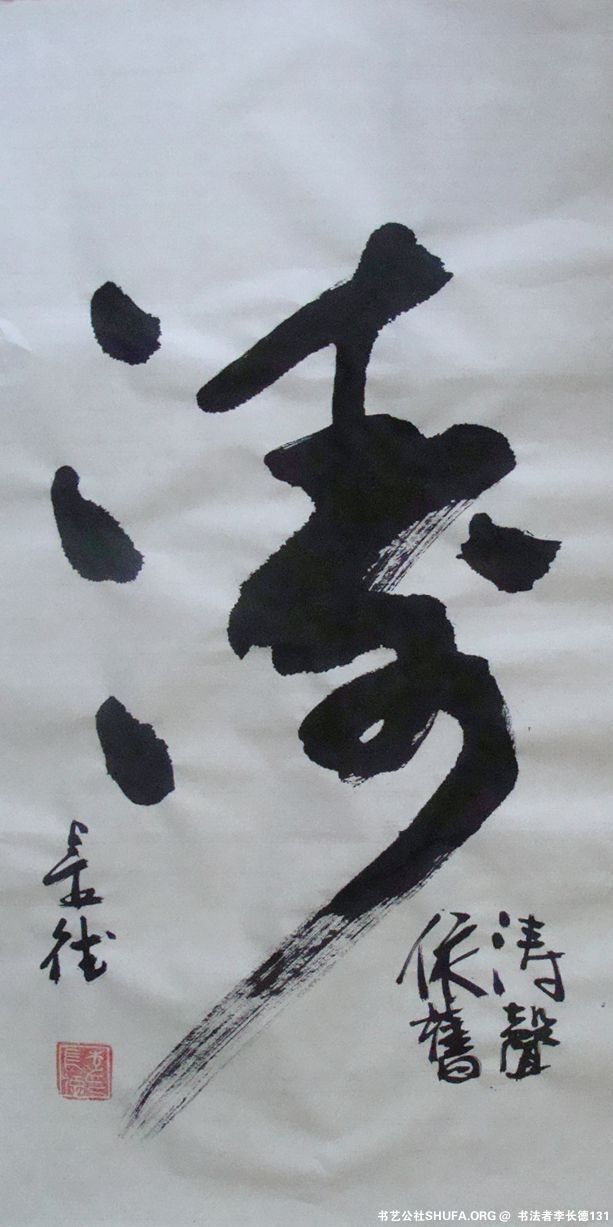 涛
涛聲
依舊
長德
书艺公社SHUFA.ORG @ 书法者李长德131